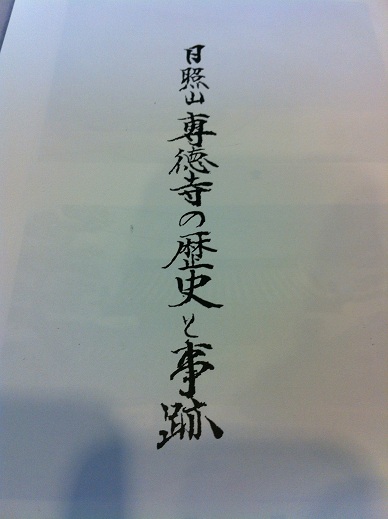 日照山 専徳寺の歴史と事跡